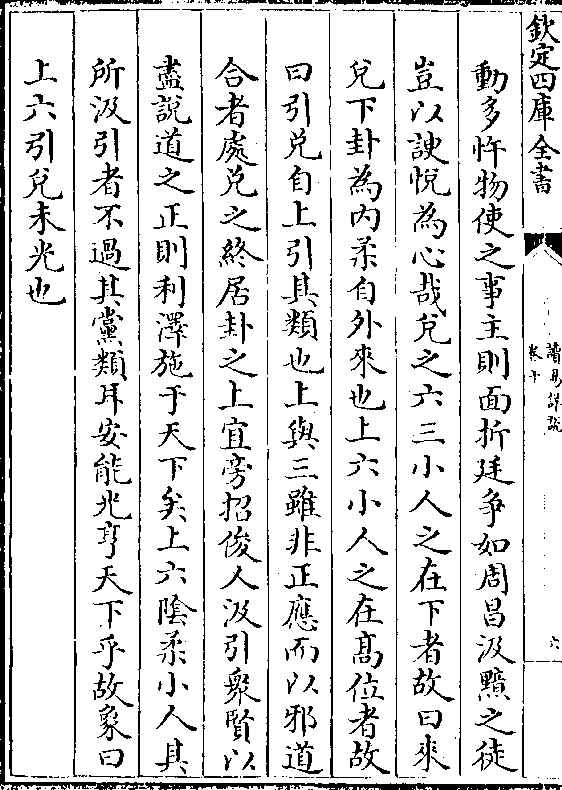 欽定四庫全書
讀易詳說
卷十
六
動多忤物使之事主則面折廷爭如周昌汲黯之徒
豈以諛悅為心哉兌之六三小人之在下者故曰來
兌下卦為内柔自外來也上六小人之在髙位者故
曰引兌自上引其類也上與三雖非正應而以邪道
合者處兌之終居卦之上宜旁招俊人汲引衆賢以
盡説道之正則利澤施于天下矣上六陰柔小人其
所汲引者不過其黨類耳安能光亨天下乎故象曰
上六引兌未光也